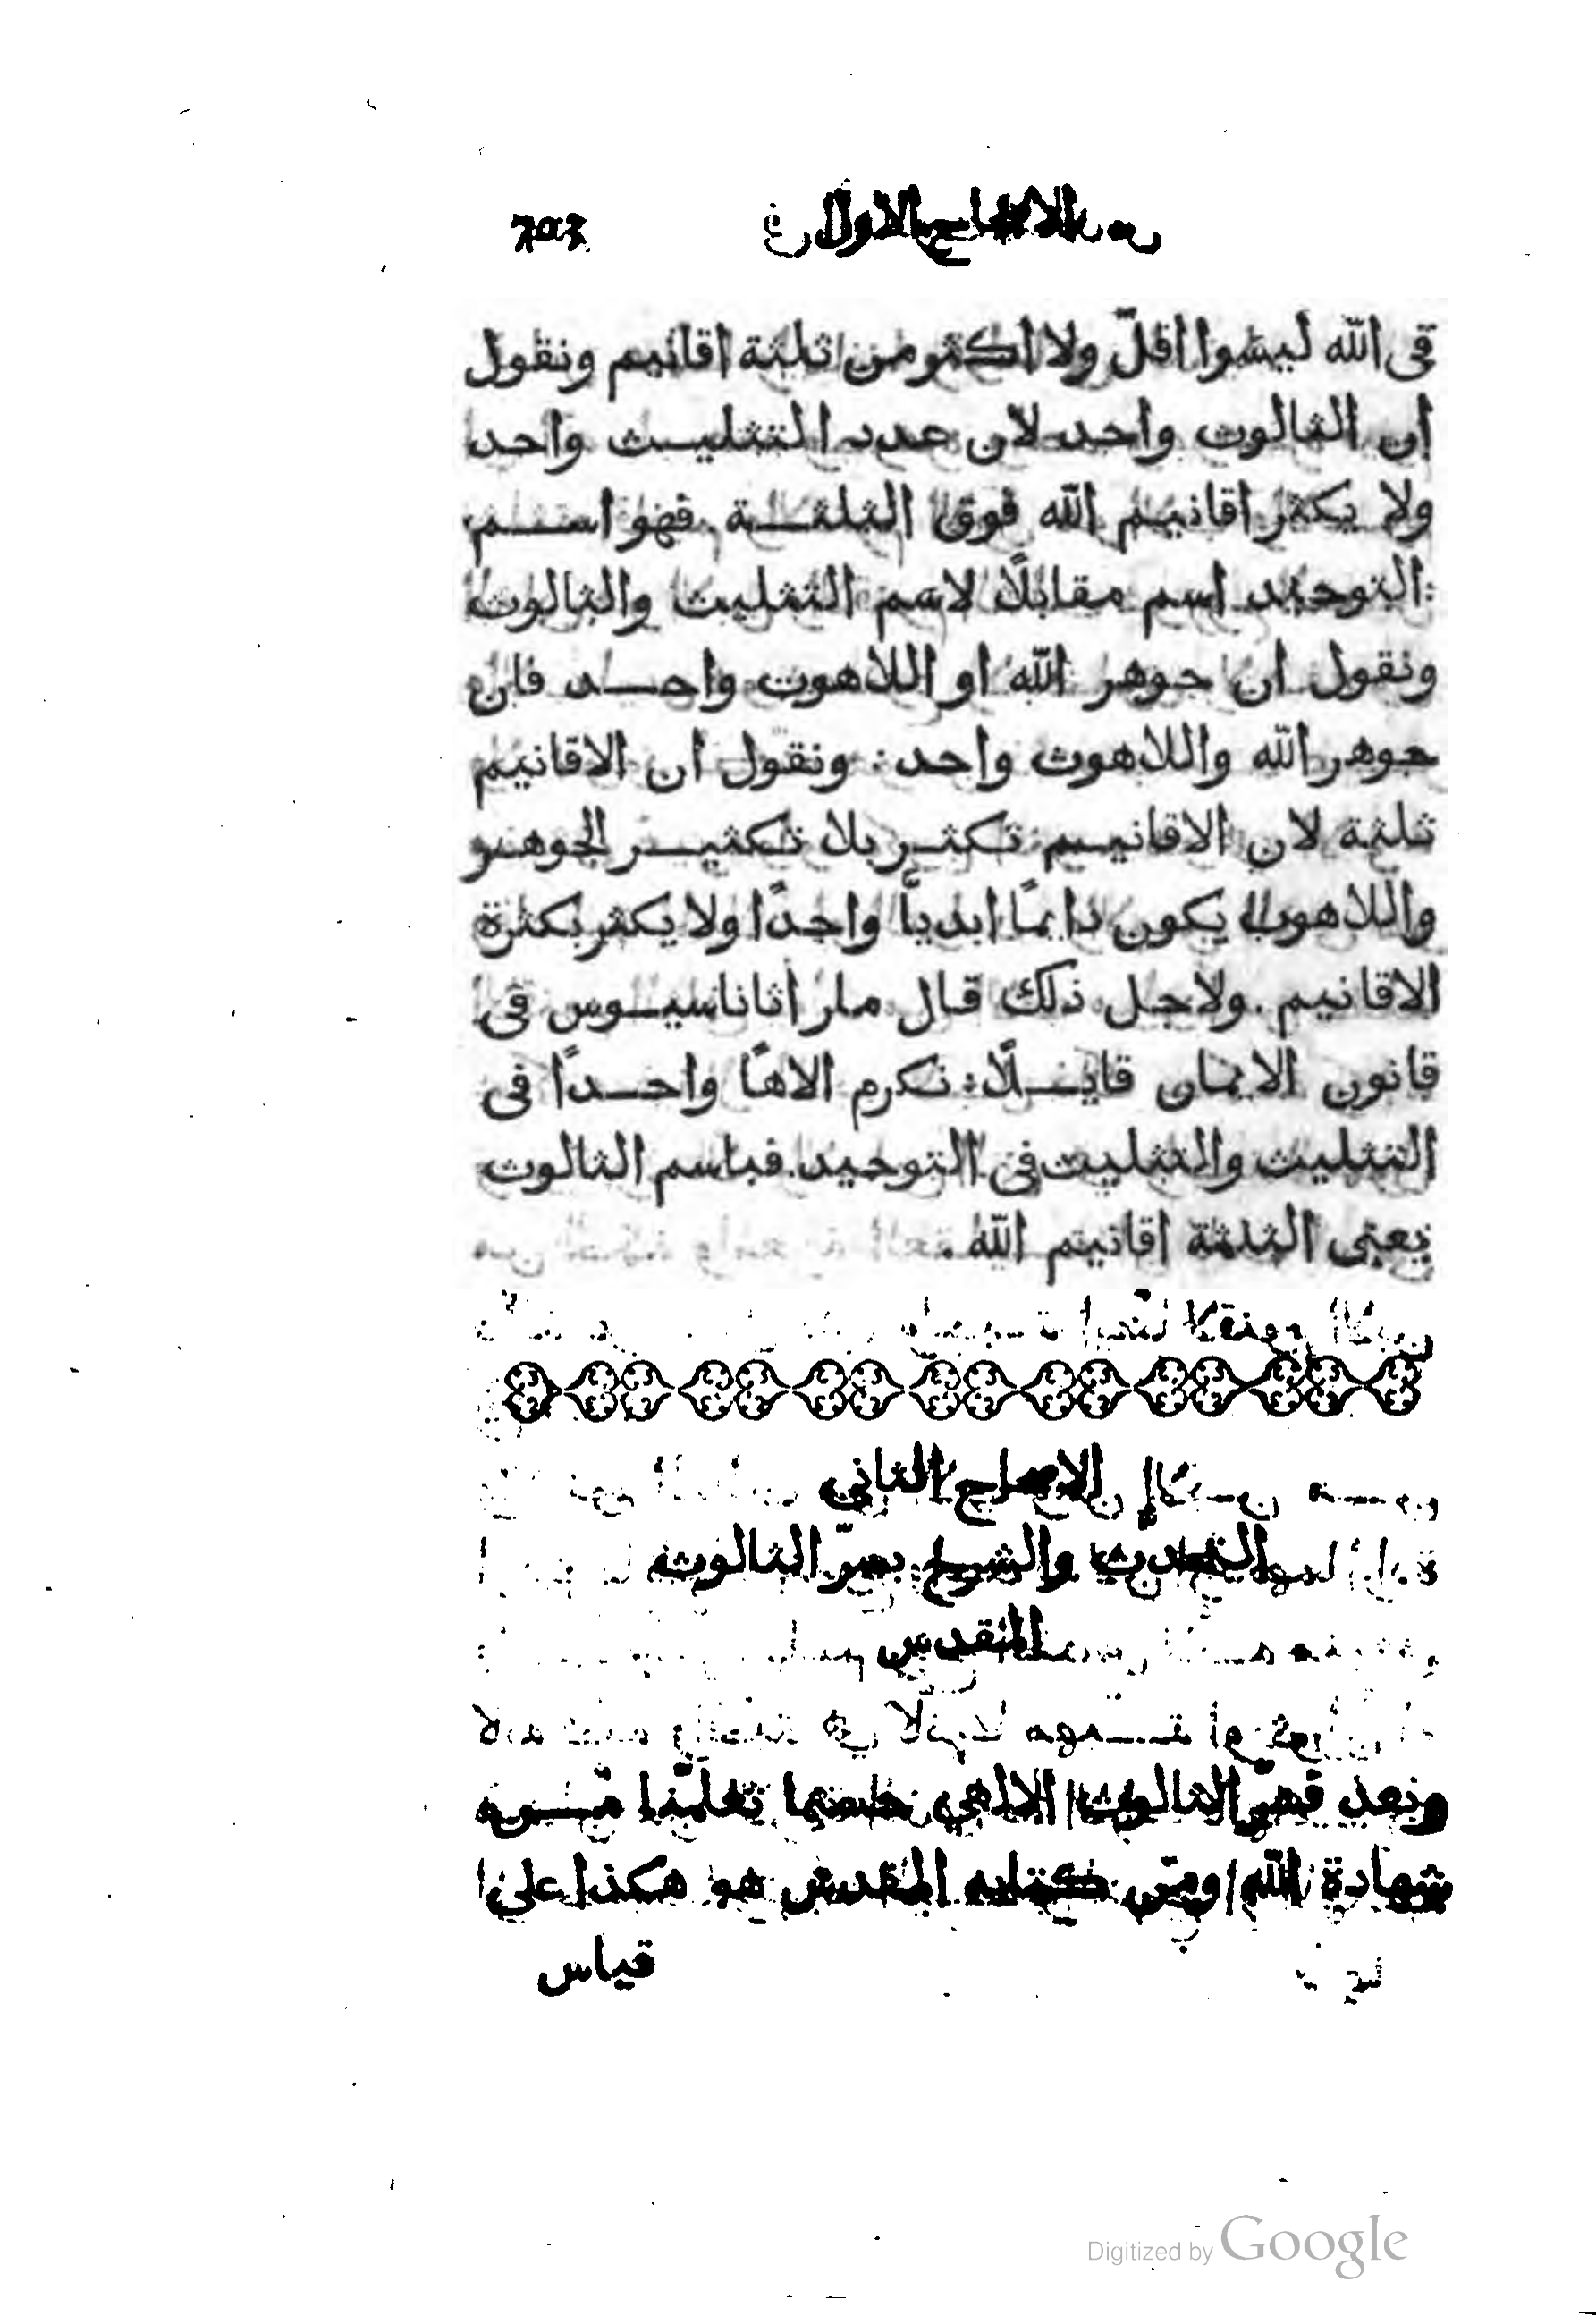 الاصحاح الاول
في الله ليسوا اقلّ ولا اكثر من ثلثة اقانيم ونقول
ان الثالوث واحد لان عدد التثليث واحد
ولا يكثر اقانيم الله فوق الثلثة . فهو اسم
التوحيد اسم مقابلًا لاسم التثليث والثالوث
ونقول ان جوهر الله او اللاهوت واحد فان
جوهر الله واللاهوت واحد : ونقول ان الاقانيم
ثلثة لان الاقانيم تكثر بلا تكثير الجوهر
واللاهوت يكون دايمًا ابدياً واحدًا ولا يكثر بكثرة
الاقانيم . ولاجل ذلك قال مار اثاناسيوس في
قانون الايمان قايلًا : نكرم الاهًا واحدًا في
التثليث والتثليث في التوحيد . فباسم الثالوث
يعني الثلثة اقانيم الله .
الاصحاح الثاني
والشرح بسرّ الثالوث
المقدس
وبعد فسرّ الثالوث الالهي حسبما تعلّمنا
شهادة الله ومن كتابه المقدس هو هكذا على
قياس
Digitized by Google